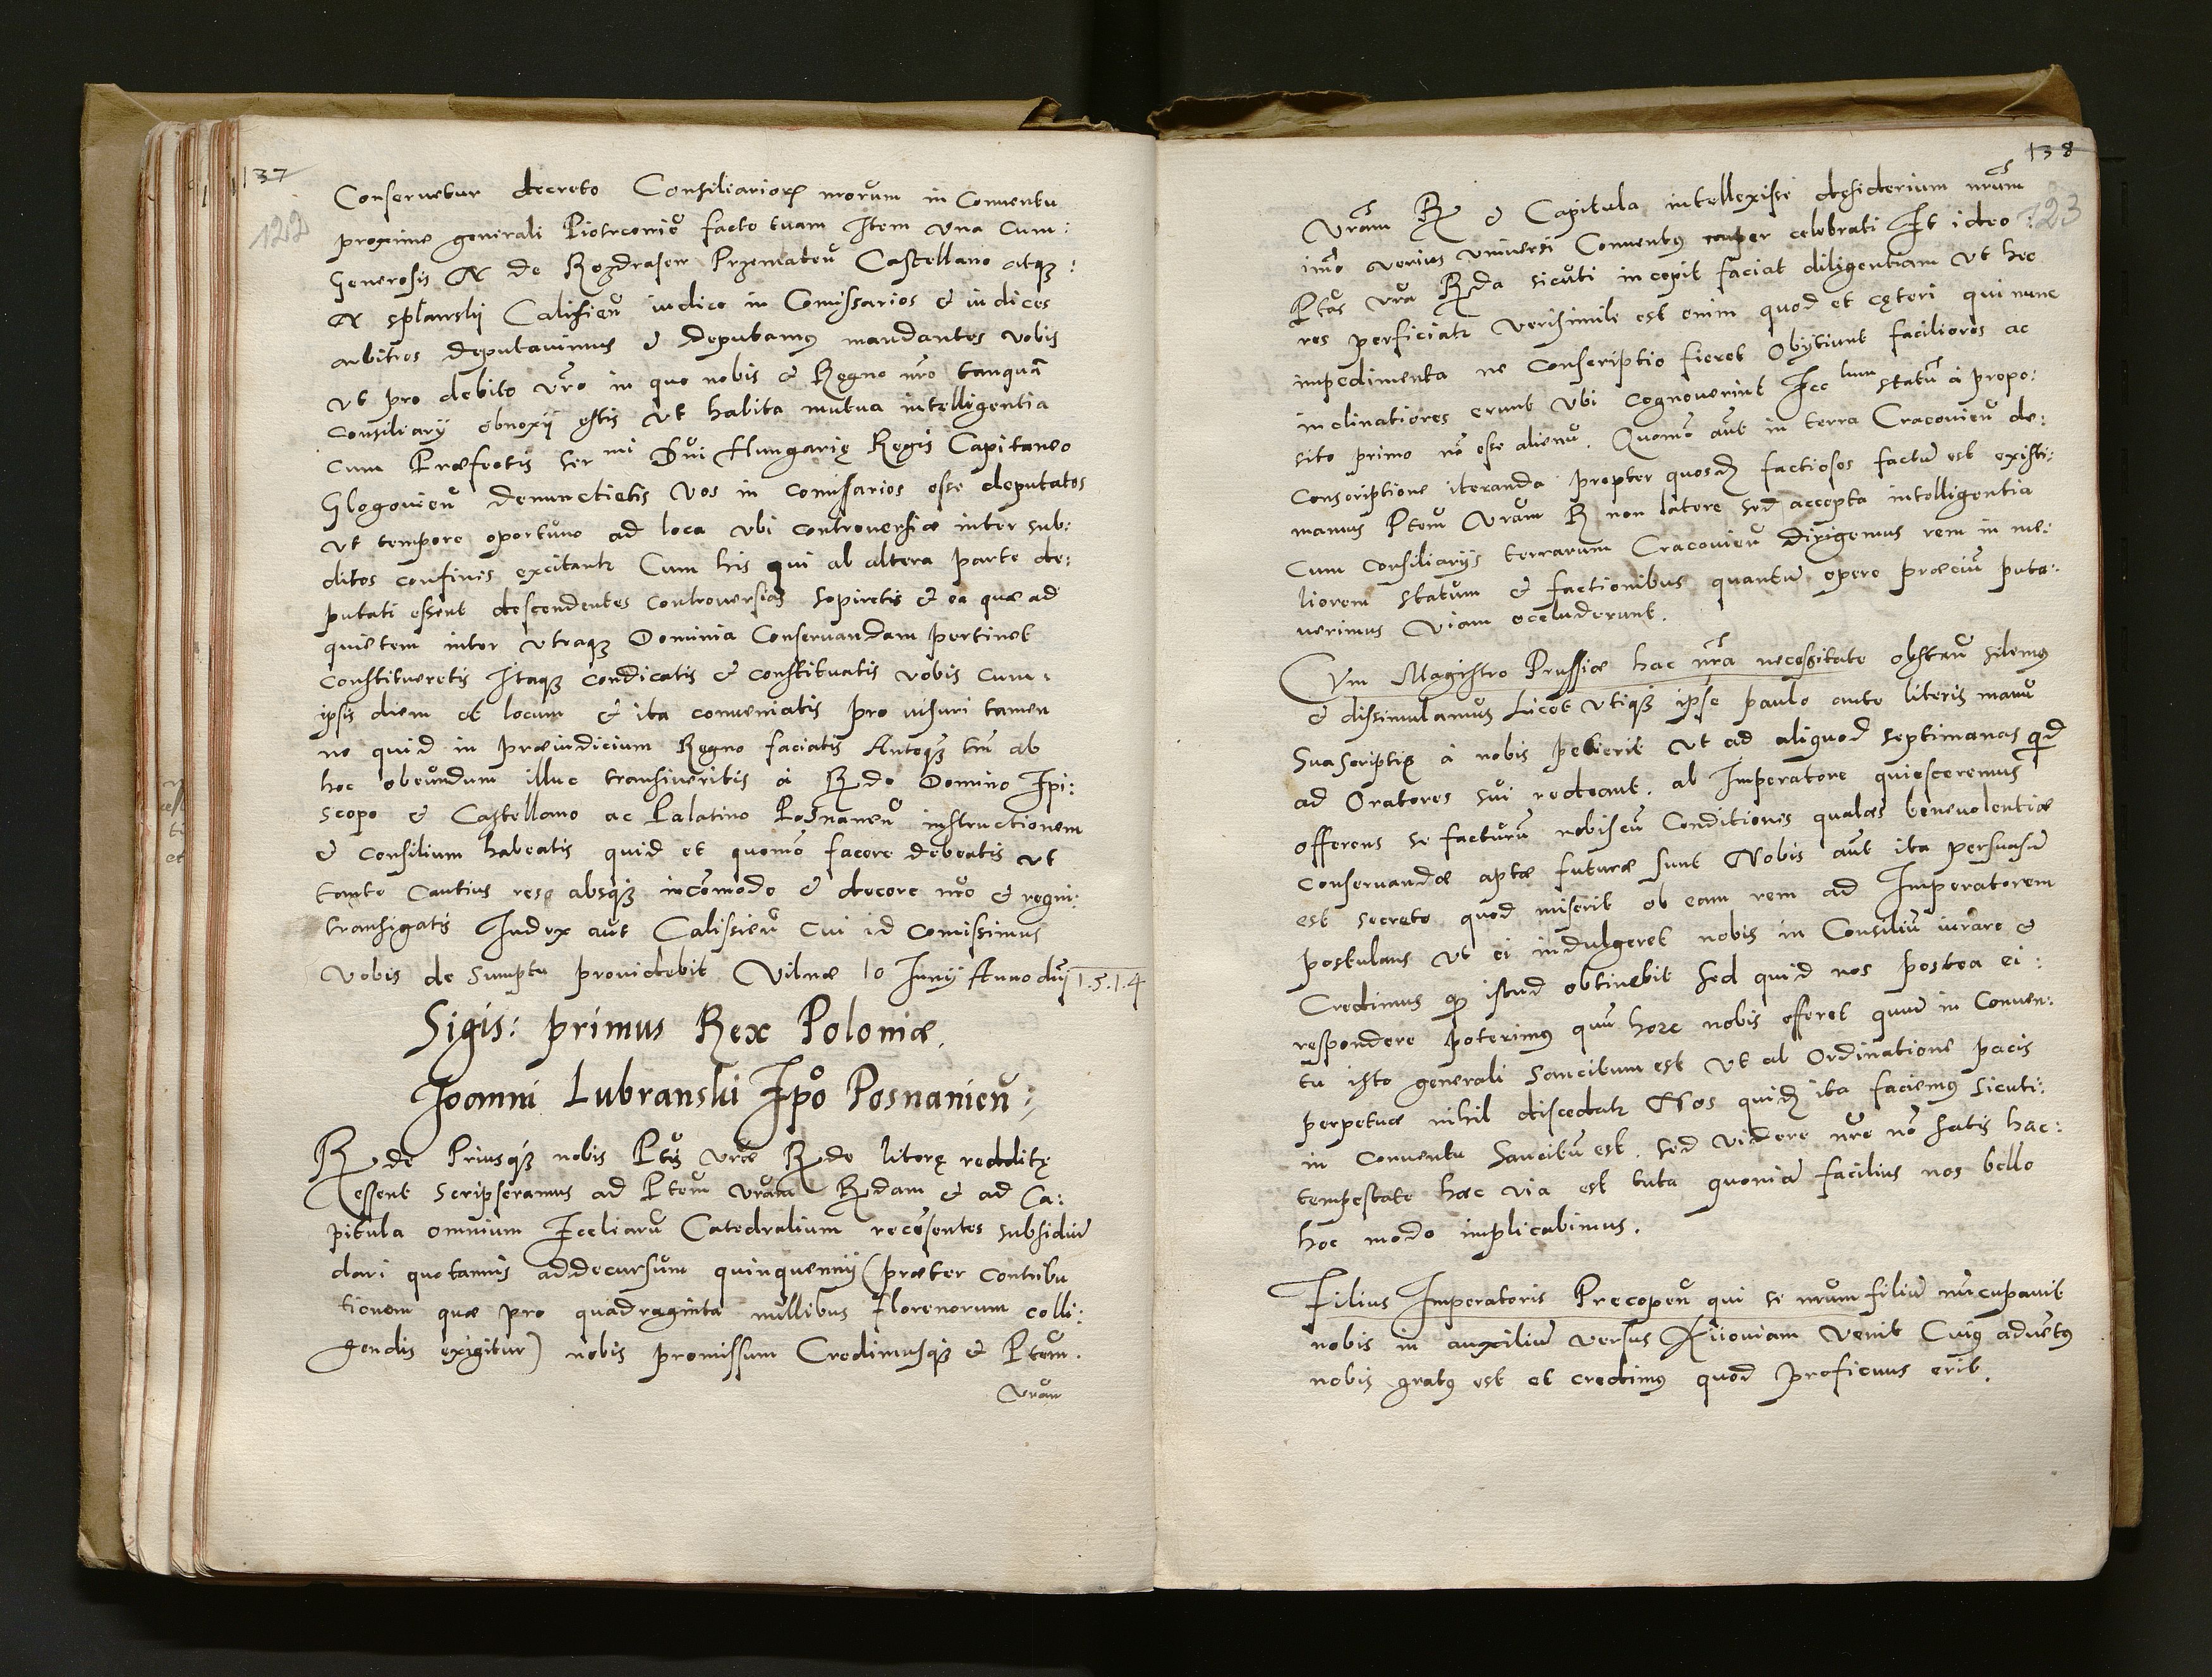 137
122
Conseruetur decreto Consiliarioꝝ nrorum in Conuentu
proxime generali Piotrconiẽ facto tuam Item vna cum:
Generosis N de Rozdrasew Przemateñ Castellano atqꝫ:
N splawskij Calisieñ iudice in Comissarios & iudices
arbitros deputauimus & deputamꝯ mandantes vobis
vt pro debito vr̃o in quo nobis & Regno nr̃o tanquã
consiliarij obnoxij estis vt habita mutua intelligentia
cum Præfectis ser mi Dñi Hungarię Regis Capitaneo
Glogouieñ denunctietis vos in comissarios esse deputatos
vt tempore oportuno ad loca vbi controuersiæ inter sub:
ditos confinis excitantr Cum his qui ab altera parte de:
putati essent descendentes controuersias sopiretis & ea quæ ad
quietem inter vtraqꝫ Dominia Conseruandam pertinet
constitueretis Itaqꝫ condicatis & constituatis vobis cum:
ipsis diem et locum & ita conueniatis pro uisuri tamen
ne quid in præiudicium Regno faciatis Anteqꝫ tñ ab
hoc obeundum illuc transiueritis à R̃do Domino Epi:
scopo & Castellano ac Palatino Posnaneñ instructionem
& consilium habeatis quid et quomõ facere debeatis vt
tanto cautius res absqꝫ incõmodo & decore nr̃o & regni:
transigatis Index aũt Calissieñ cui id comissimus
vobis de sumptu prouidebit Vilnæ 10 Junij Anno dñj 1.5.1.4
Sigis: primus Rex Poloniæ.
Joanni Lubranski Epõ Posnanieñ:
R̃de Priusqꝫ nobis Ptis vræ R̃de literę redditę
essent scripseramus ad Ptem vram R̃dam & ad Ca:
pitula omnium Eccliarũ Catedralium recẽsentes subsidiũ
dari quotannis ad decursum quinquennij (præter contribu
tionem quæ pro quadraginta millibus florenorum colli:
gendis exigitur) nobis promissum Credimusqꝫ & Ptem.
vram
138
123
Vram R & Capitula intellexisse desiderium nrum
imõ verius vniuersi Conuentꝯ nuper celebrati Et ideo:
Ptas vra R̃da sicuti incepit faciat diligentiam vt hec
res perficiatr verisimile est enim quod et cęteri qui nunc
impedimenta ne conscriptio fieret Obijciunt faciliores ac
inclinatiores erunt vbi cognouerint Ecc lum statũ à propo:
sito primo nõ esse alienũ. Quomõ aũt in terra Cracouieñ de:
conscriptione iteranda propter quosdꝫ factiosos factũ est existi:
mamus Ptem Vram R non latere sed accepta intelligentia
cum consiliarijs terrarum Cracouieñ dirigemus rem in me:
liorem statum & factionibus quantũ opere præciũ puta:
uerimus viam occluderunt.
Cum Magistro Prussiæ hac nrã necessitate obstañ silemꝯ
& dissimulamus Licet vtiqꝫ ipse paulo ante literis manu
Sua scriptis à nobis petierit vt ad aliquod septimanas qd
ad Oratores sui redeant. ab Imperatore quiesceremus
offerens se facturũ nobiscũ Conditionis quales beneuolentiæ
conseruandæ aptæ futuræ sunt Nobis aũt ita persuasũ
est secreto quod miserit ob eam rem ad Imperatorem
postulans vt ei indulgeret nobis in Consiliũ iurare &
Credimus qꝫ istud obtinebit Sed quid nos postea ei:
respondere poterimꝯ quũ hoec nobis offeret quũ in Conuen:
tu isto generali Sancitum est vt ab Ordinatione pacis
perpetuæ nihil discedatr Nos quidꝫ ita faciemꝯ sicuti:
in conuentu Sancitũ est. Sed videre nr̃o nõ satis hac:
tempestate hæc via est tuta quoniã facilius nos bello
hoc modo implicabimus.
Filius Imperatoris Precopeñ qui se nrum filiũ nũcupauit
nobis in auxiliũ versus Kiiouiam venit Cuiꝯ aduẽtꝯ
nobis gratꝯ est et credimꝯ quod proficuus erit.